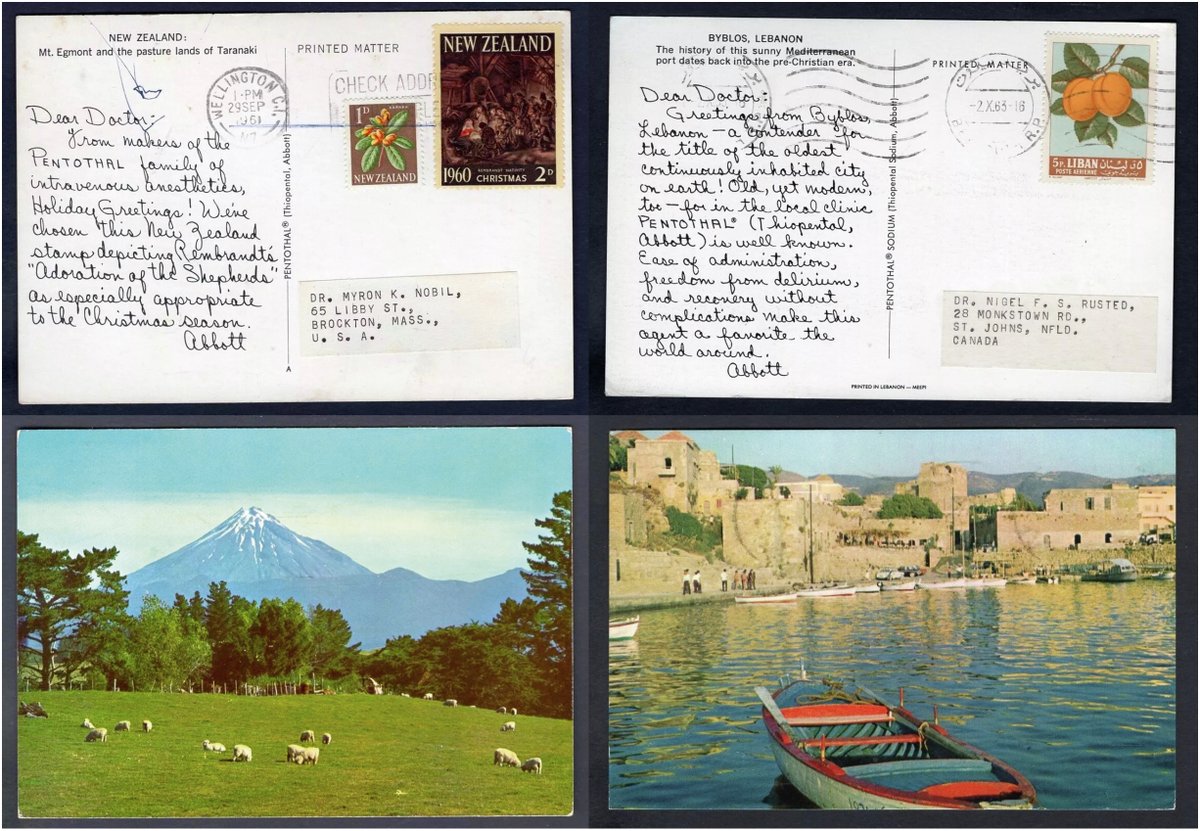 NEW ZEALAND:
Mt. Egmont and the pasture lands of Taranaki
PRINTED MATTER
WELLINGTON C.1,
1-PM
29 SEP
1961
N.Z.
CHECK ADDR
1D
KARAKA
NEW ZEALAND
NEW ZEALAND
REMBRANDT NATIVITY
1960 CHRISTMAS 2D
Dear Doctor:
From makers of the
PENTOTHAL family of
intravenous anesthetics,
Holiday Greetings! We've
chosen this New Zealand
stamp depicting Rembrandt's
"Adoration of the Shepherds"
as especially appropriate
to the Christmas season.
Abbott
PENTOTHAL® (Thiopental, Abbott)
DR. MYRON K. NOBIL,
65 LIBBY ST.,
BROCKTON, MASS.,
U. S. A.
A
BYBLOS, LEBANON
The history of this sunny Mediterranean
port dates back into the pre-Christian era.
PRINTED MATTER
-2.X.63-16
R.P.
5P. LIBAN لبنان ٥ق
POSTE AERIENNE
Dear Doctor:
Greetings from Byblos,
Lebanon – a contender for
the title of the oldest
continuously inhabited city
on earth! Old, yet modern,
too – for in the local clinic
PENTOTHAL® (Thiopental,
Abbott) is well known.
Ease of administration,
freedom from delirium,
and recovery without
complications make this
agent a favorite the
world around.
Abbott
PENTOTHAL® SODIUM (Thiopental Sodium, Abbott)
DR. NIGEL F. S. RUSTED,
28 MONKSTOWN RD.,
ST. JOHNS, NFLD.
CANADA
PRINTED IN LEBANON — MEEPI